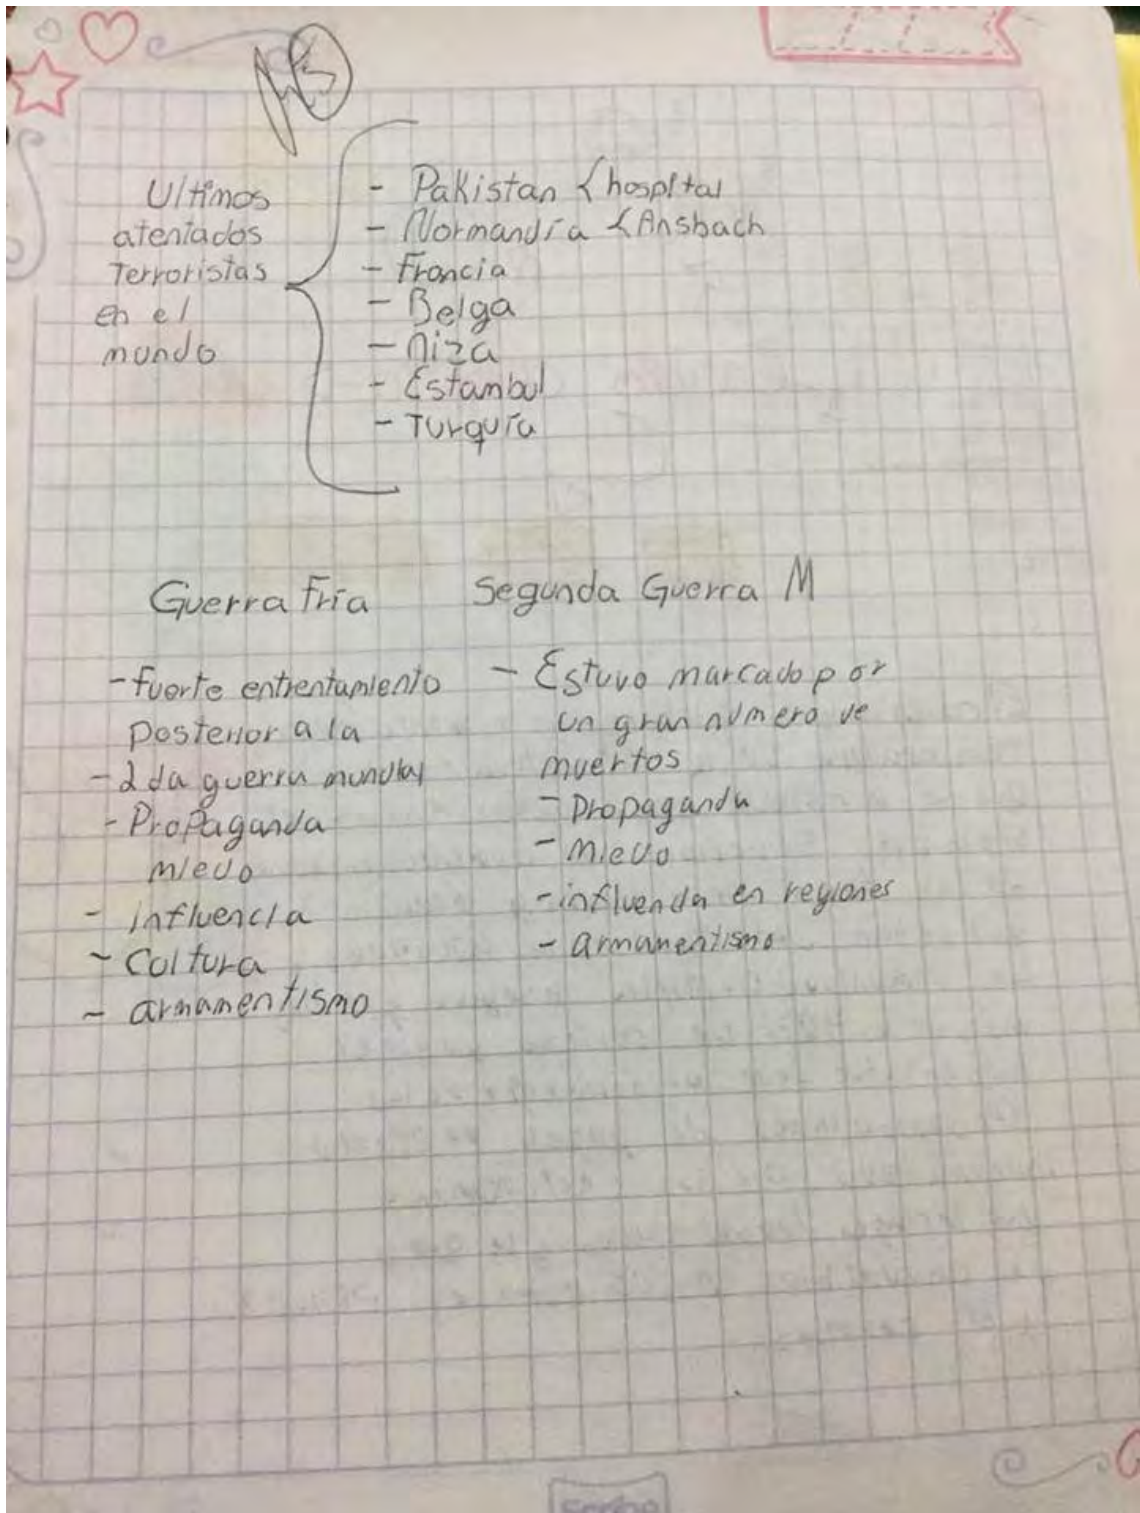 5
Ultimos
atentados
Terroristas
en el
mundo
- Pakistan { hospital
- Normandía { Ansbach
- Francia
- Belga
- Niza
- Estambul
- Turquía
Guerra Fría
- fuerte enfrentamiento
posterior a la
- 2da guerra mundial
- Propaganda
miedo
- influencia
- Cultura
- armamentismo
Segunda Guerra M
- Estuvo marcado por
un gran número de
muertos
- Propaganda
- miedo
- influencia en regiones
- armamentismo
Scribe